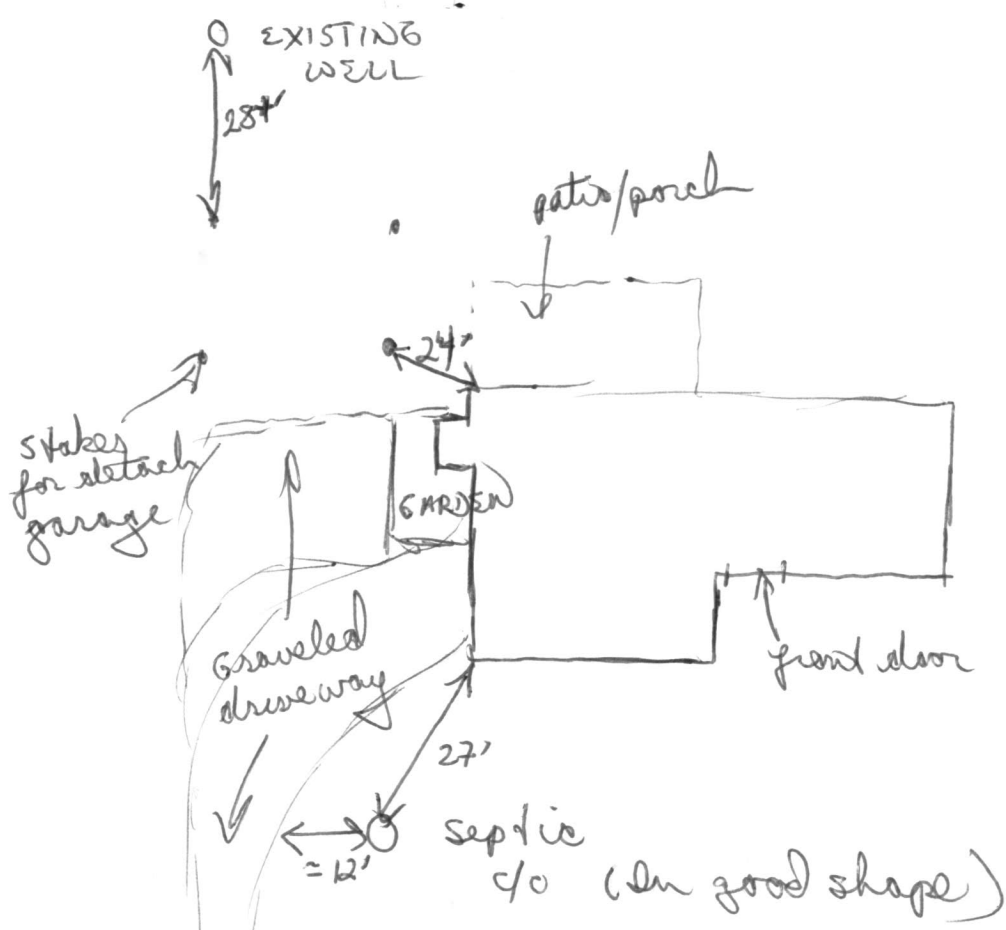 EXISTING
WELL
28+'
patio/porch
24'
stakes
for detach
garage
GARDEN
Graveled
driveway
front door
27'
septic
≈12'
c/o (In good shape)